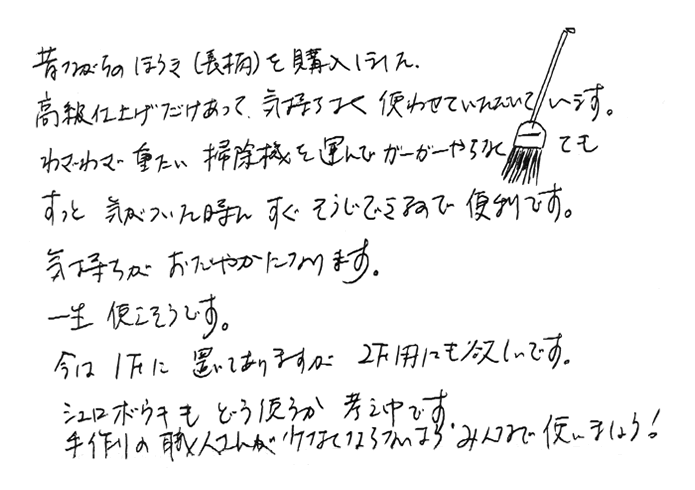 昔ながらのほうき(長柄)を購入しました.
高級仕上げだけあって、気持ちよく使わせていただいています。
わざわざ重たい掃除機を運んでガーガーやらなくても
すっと気がついた時にすぐそうじできるので便利です。
気持ちがおだやかになります。
一生使えそうです。
今は1Fに置いてありますが2F用にも欲しいです。
シュロボウキもどう使うか考え中です
手作りの職人さんが少なくなるみんなで使いましょう!